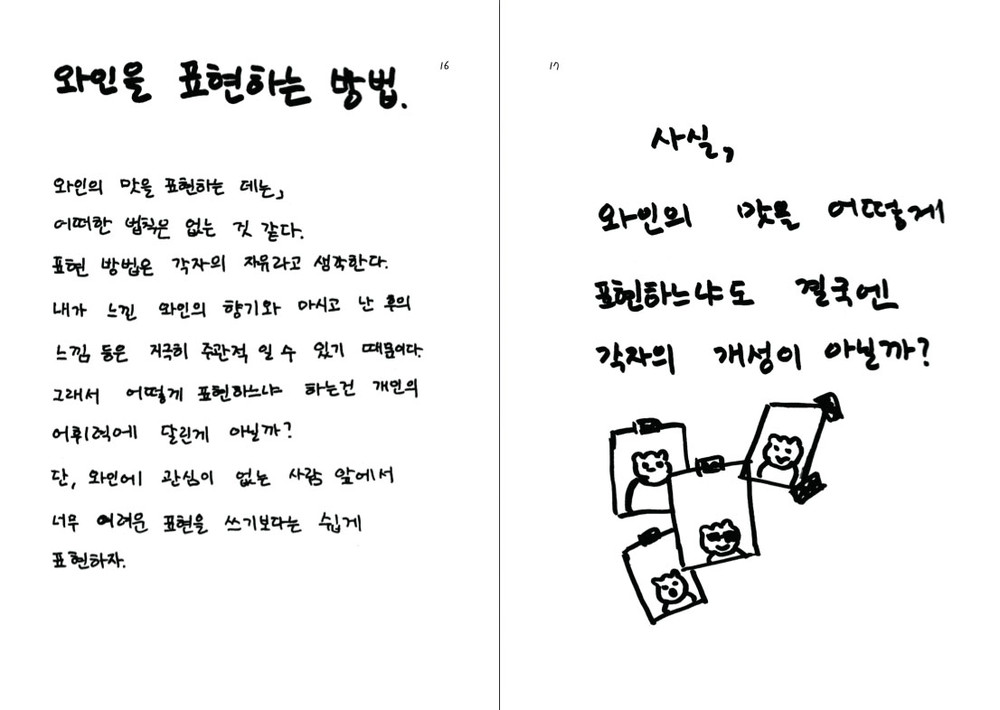 와인을 표현하는 방법.
16
와인의 맛을 표현하는 데는,
어떠한 법칙은 없는 것 같다.
표현 방법은 각자의 자유라고 생각한다.
내가 느낀 와인의 향기와 마시고 난 후의
느낌 등은 지극히 주관적 일 수 있기 때문이다.
그래서 어떻게 표현하느냐 하는건 개인의
어휘력에 달린게 아닐까?
단, 와인에 관심이 없는 사람 앞에서
너무 어려운 표현을 쓰기보다는 쉽게
표현하자.
17
사실,
와인의 맛을 어떻게
표현하느냐도 결국엔
각자의 개성이 아닐까?